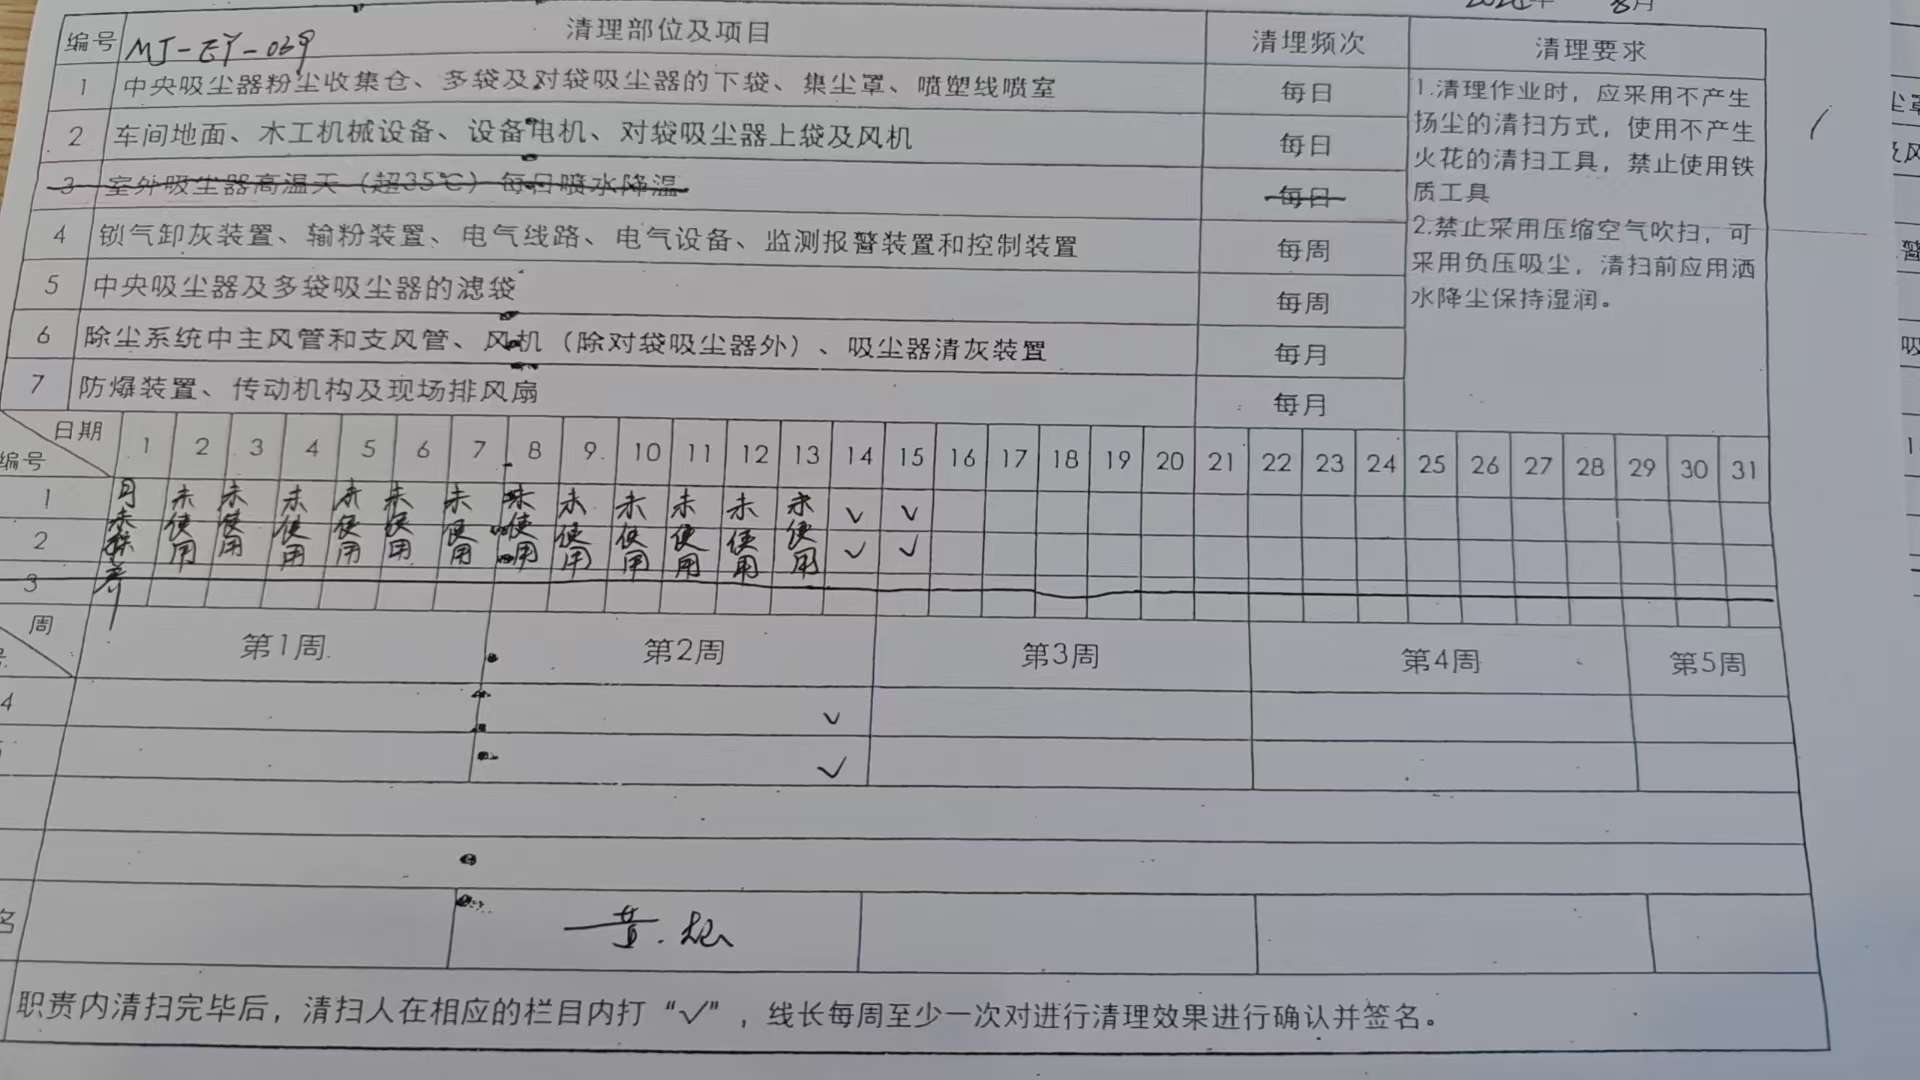 8月
编号 MJ-EY-039 清理部位及项目 清理频次 清理要求
1 中央吸尘器粉尘收集仓、多袋及对袋吸尘器的下袋、集尘罩、喷塑线喷室 每日
2 车间地面、木工机械设备、设备电机、对袋吸尘器上袋及风机 每日
3 室外吸尘器高温天（超35℃）每日喷水降温 每日
4 锁气卸灰装置、输粉装置、电气线路、电气设备、监测报警装置和控制装置 每周
5 中央吸尘器及多袋吸尘器的滤袋 每周
6 除尘系统中主风管和支风管、风机（除对袋吸尘器外）、吸尘器清灰装置 每月
7 防爆装置、传动机构及现场排风扇 每月
1.清理作业时，应采用不产生
扬尘的清扫方式，使用不产生
火花的清扫工具，禁止使用铁
质工具
2.禁止采用压缩空气吹扫，可
采用负压吸尘，清扫前应用洒
水降尘保持湿润。
日期 1 2 3 4 5 6 7 8 9 10 11 12 13 14 15 16 17 18 19 20 21 22 23 24 25 26 27 28 29 30 31
编号
1 未使用 未使用 未使用 未使用 未使用 未使用 未使用 未使用 未使用 未使用 未使用 未使用 √ √
2 √ √
3
周 第1周 第2周 第3周 第4周 第5周
4 √
√
名 黄
职责内清扫完毕后，清扫人在相应的栏目内打“√”，线长每周至少一次对进行清理效果进行确认并签名。